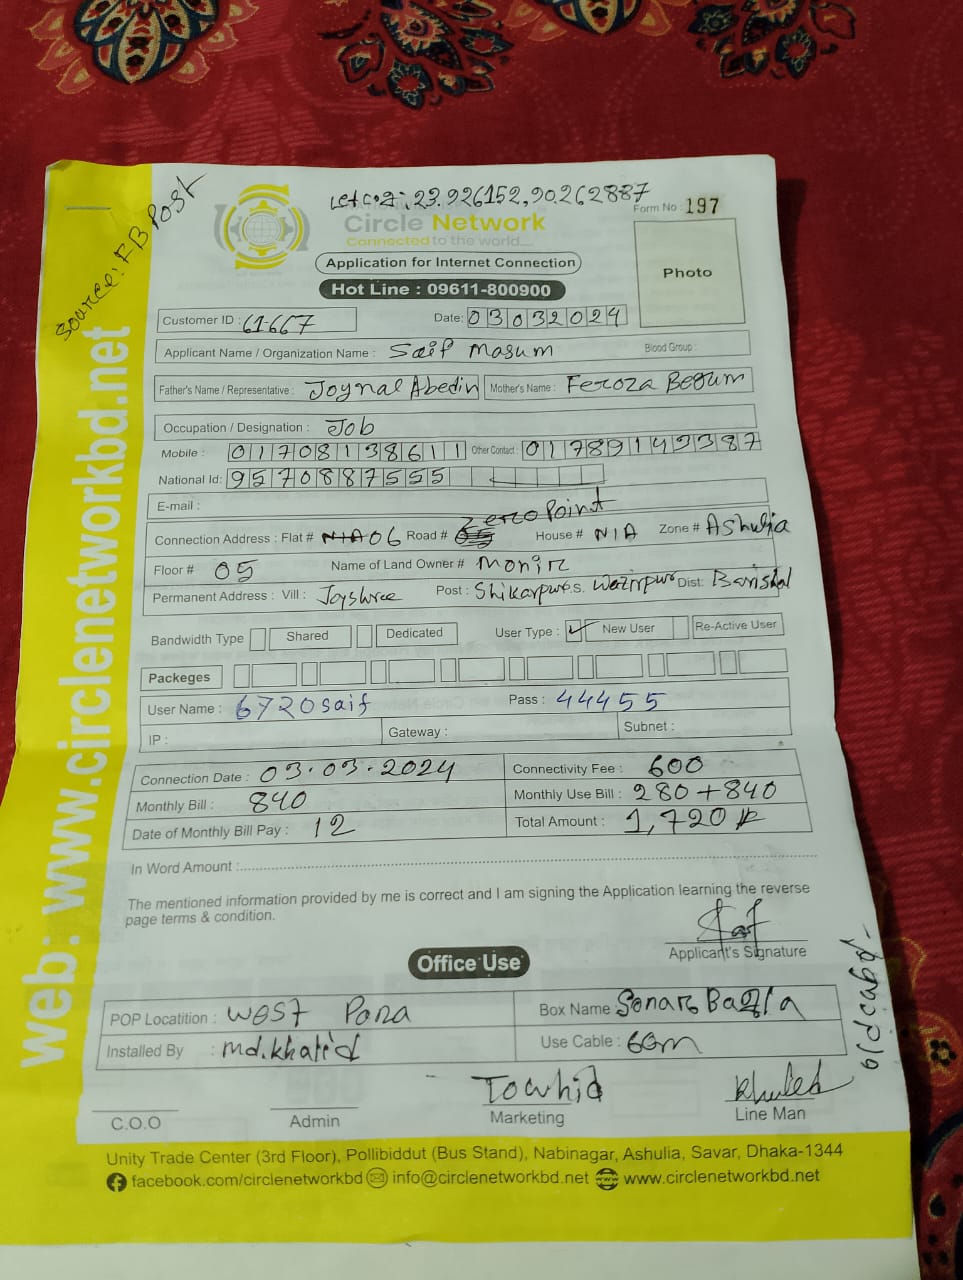 Source: FB Post
23.926152, 90.262887
Circle Network
Form No : 197
Connected to the world....
Application for Internet Connection
Photo
Hot Line : 09611-800900
Customer ID : 61667
Date: 03032024
Applicant Name / Organization Name : Saif Masum
Blood Group :
Father's Name / Representative : Joynal Abedin Mother's Name : Feroza Begum
Occupation / Designation : Job
Mobile : 01708138611 Other Contact : 01789142387
National Id: 9570887555
E-mail :
Zero Point
Connection Address : Flat # N/A 06 Road # House # N/A Zone # Ashulia
Floor # 05 Name of Land Owner # Monir
Permanent Address : Vill : Joyshree Post : Shikarpur P.S. Wazirpur Dist: Barishal
Bandwidth Type Shared Dedicated User Type : ✓ New User Re-Active User
Packeges
User Name : 6720saif Pass : 44455
IP : Gateway : Subnet :
Connection Date : 03.03.2024 Connectivity Fee : 600
Monthly Bill : 840 Monthly Use Bill : 280+840
Date of Monthly Bill Pay : 12 Total Amount : 1,720
In Word Amount :
The mentioned information provided by me is correct and I am signing the Application learning the reverse
page terms & condition.
Applicant's Signature
Office Use
POP Locatition : West Para Box Name : Sonar Bagla
Installed By : Md. Khalid Use Cable : 60m
old cable
Towhid
C.O.O Admin Marketing Line Man
Unity Trade Center (3rd Floor), Pollibiddut (Bus Stand), Nabinagar, Ashulia, Savar, Dhaka-1344
facebook.com/circlenetworkbd info@circlenetworkbd.net www.circlenetworkbd.net
web: www.circlenetworkbd.net